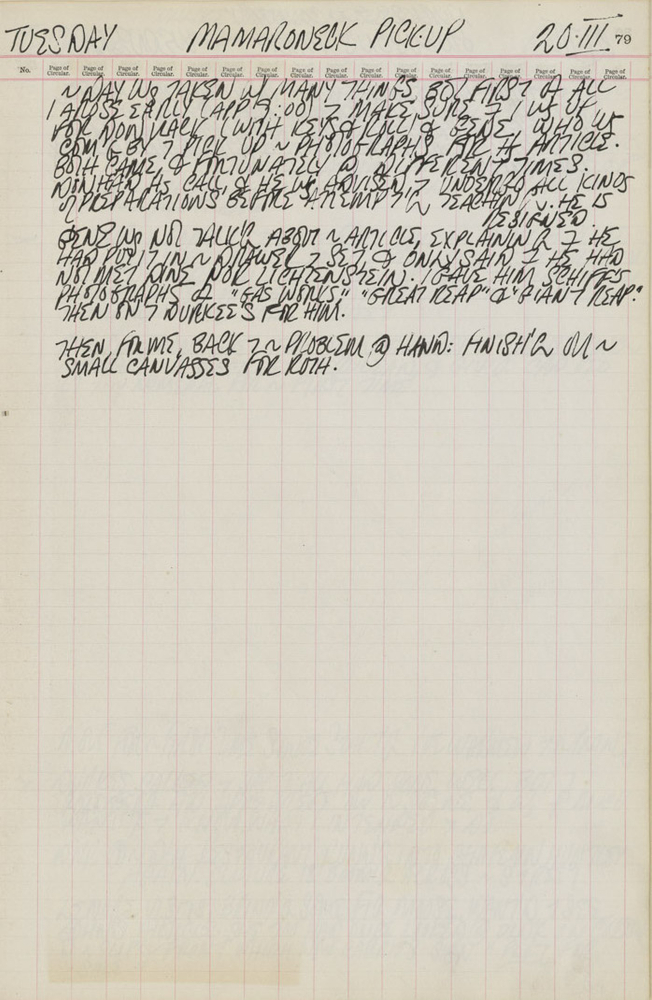 TUESDAY MAMARONECK PICKUP 20·III 79
No. Page of Circular. Page of Circular. Page of Circular. Page of Circular. Page of Circular. Page of Circular. Page of Circular. Page of Circular. Page of Circular. Page of Circular. Page of Circular. Page of Circular. Page of Circular. Page of Circular. Page of Circular. Page of Circular. Page of Circular.
~ DAY WS TAKEN W/ MANY THINGS BUT FIRST OF ALL
I AROSE EARLY (APP 9:00) 7 MAKE SURE I WS UP
FOR W/ KEYS & GENE WHO WS
COM'G BY 7 PICK UP ~ PHOTOGRAPHS FOR ARTICLE.
BOTH CAME & FORTUNATELY @ DIFFERENT TIMES.
CALL & HE WS ADVISED 7 UNDERGO ALL KINDS
OF PREPARATIONS BEFORE ~ TEACHIN'. HE IS
RESIGNED
GENE WS NOT TALK'G ABOUT ~ ARTICLE, EXPLAININ'G HE
HAD PUT IT IN ~ DRAWER 7 SET & ONLY SAID HE HAD
NOT MET DINE NOR LICHTENSTEIN. I GAVE HIM SCHIFF'S
PHOTOGRAPHS OF "GAS WORKS" "GREAT REAP" & "GIANT REAP."
THEN ON 7 DURKEE'S FOR HIM.
THEN FOR ME, BACK 7 ~ PROBLEM @ HAND: FINISH'G ~
SMALL CANVASSES FOR ROTH.